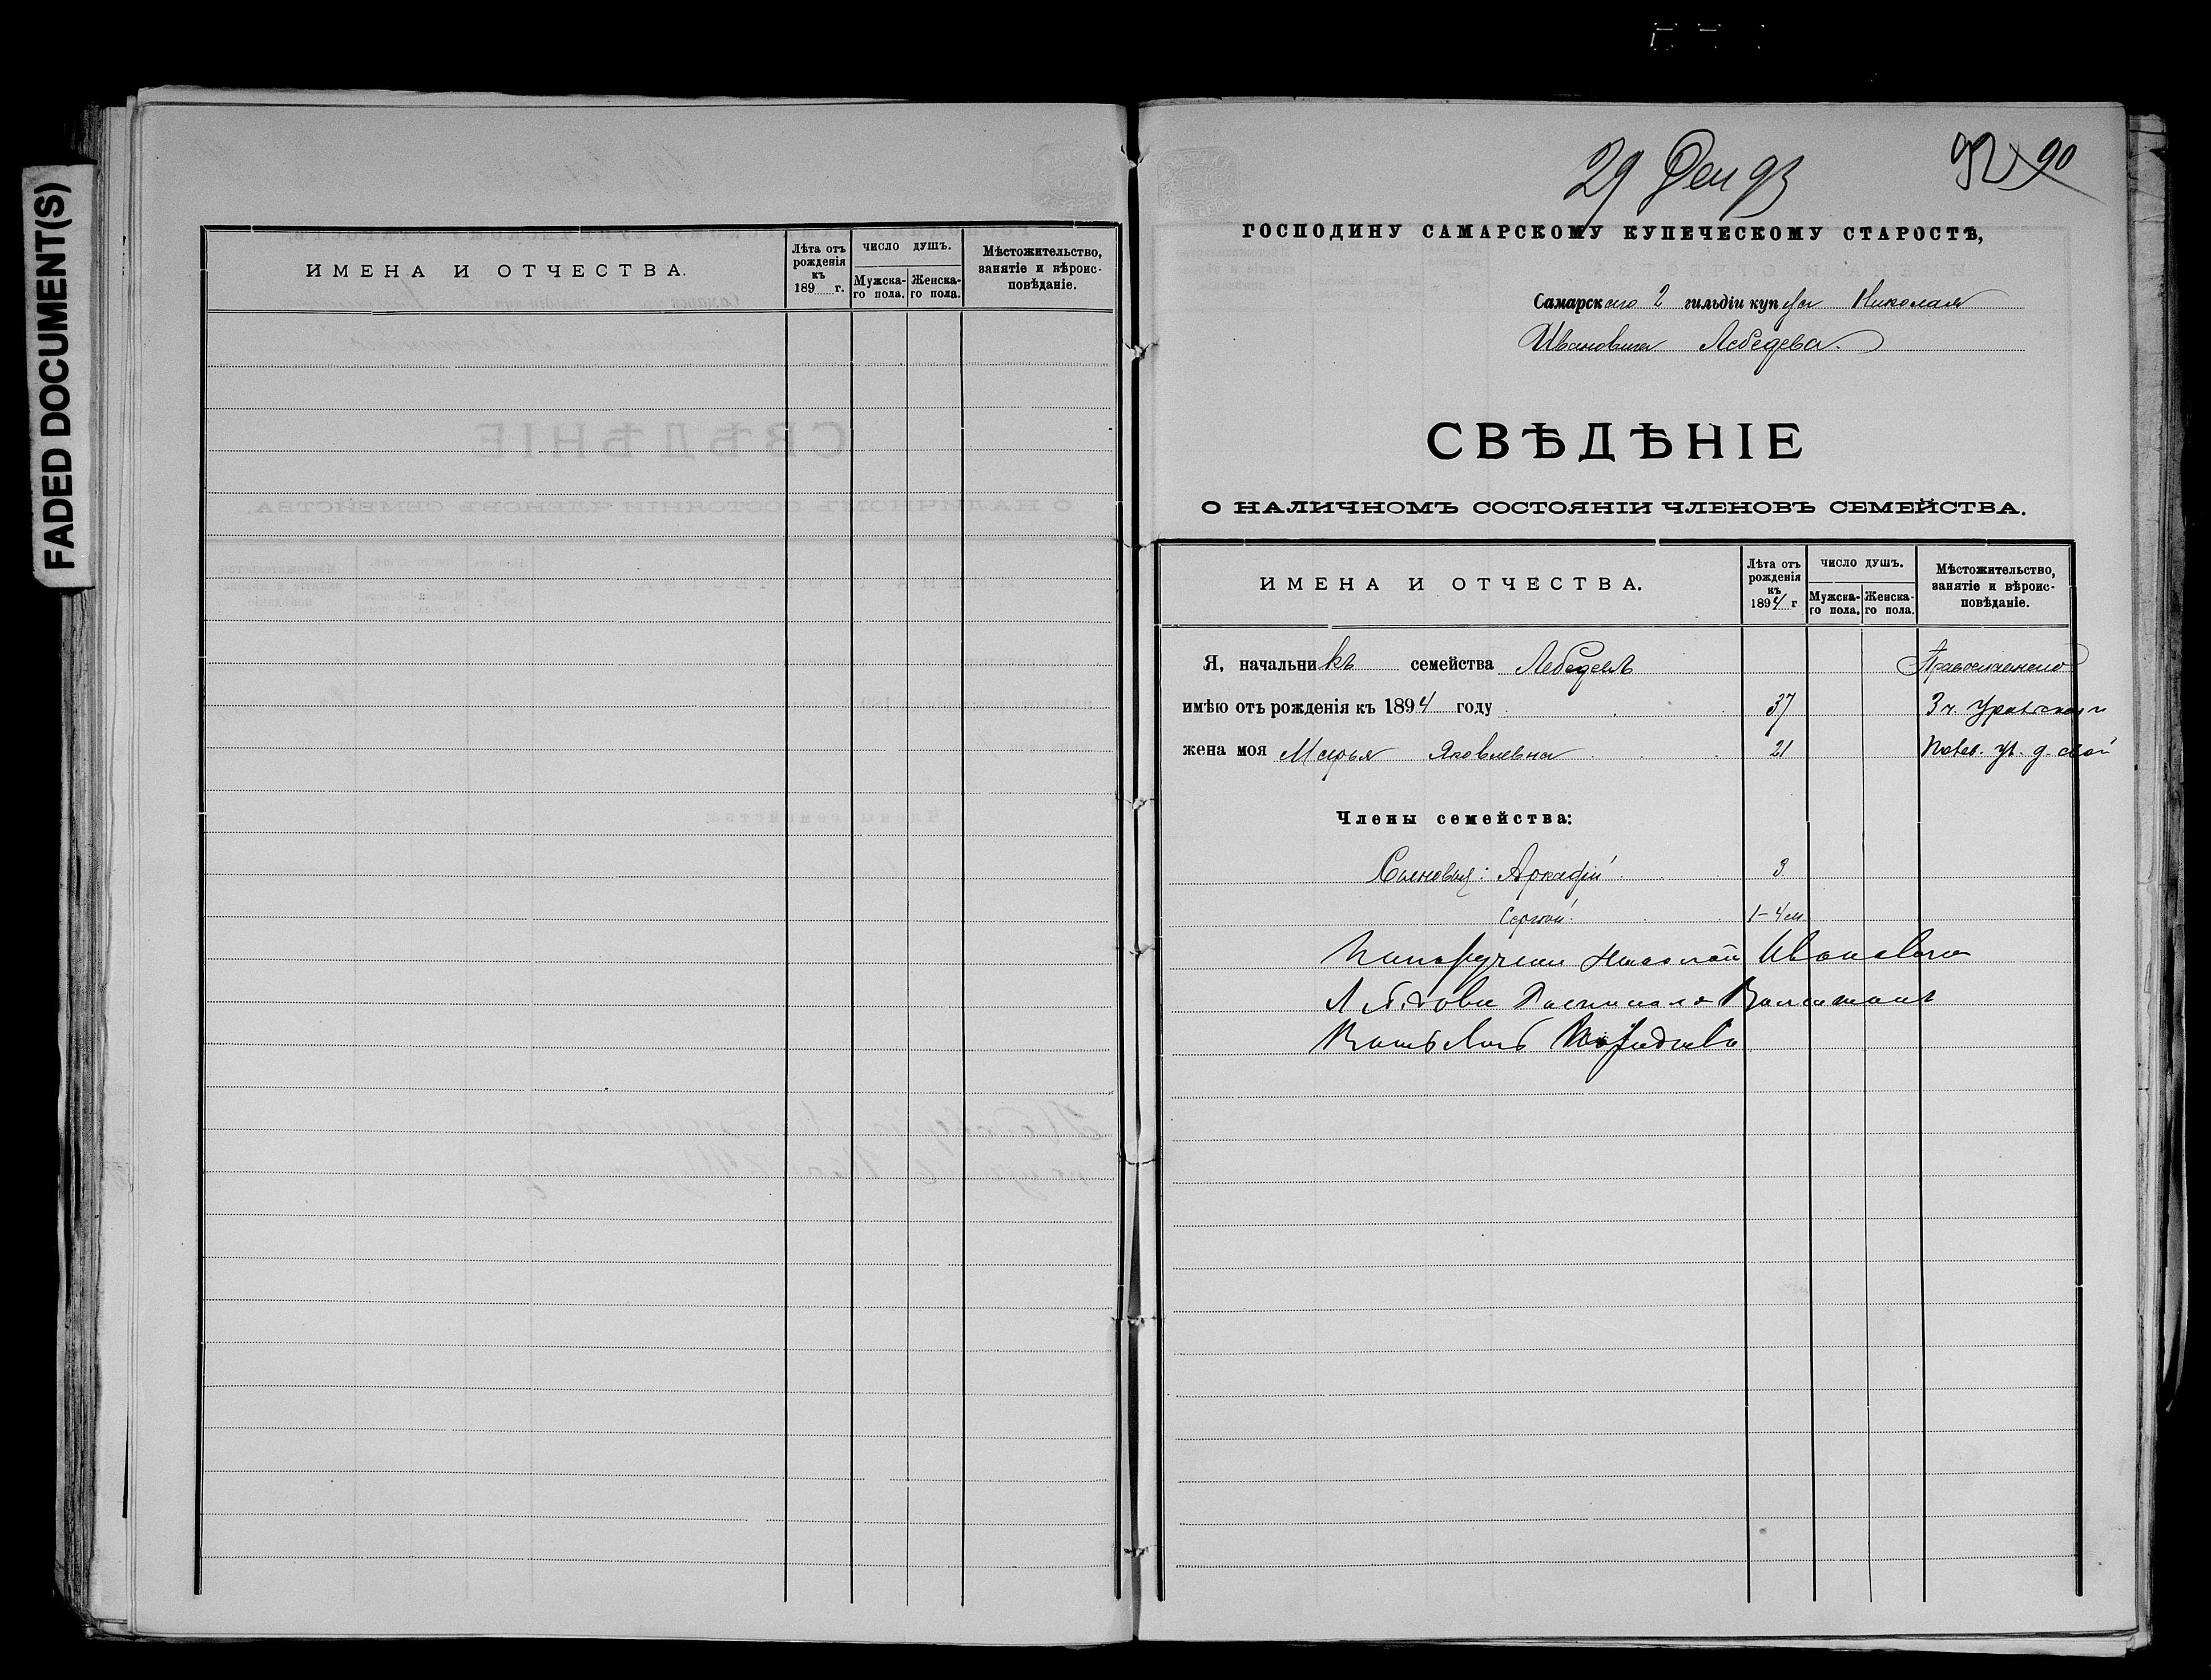 FADED DOCUMENT(S)
ИМЕНА И ОТЧЕСТВА.
Лѣта отъ рожденія къ 189 г.
ЧИСЛО ДУШЪ.
Мужска-го пола.
Женска-го пола.
Мѣстожительство, занятіе и вѣроис-повѣданіе.
29 Дек 93
92 90
ГОСПОДИНУ САМАРСКОМУ КУПЕЧЕСКОМУ СТАРОСТѢ,
Самарскаго 2 гильдіи купца Николая
Ивановича Лебедева.
СВѢДѢНІЕ
О НАЛИЧНОМЪ СОСТОЯНІИ ЧЛЕНОВЪ СЕМЕЙСТВА.
ИМЕНА И ОТЧЕСТВА.
Лѣта отъ рожденія къ 1894 г
ЧИСЛО ДУШЪ.
Мужска-го пола.
Женска-го пола.
Мѣстожительство, занятіе и вѣроис-повѣданіе.
Я, начальникъ семейства Лебедевъ
имѣю отъ рожденія къ 1894 году 37 3 ч.
жена моя Марья Яковлевна 21 д. свой
Члены семейства:
Сыновья: Аркадій 3
Сергѣй 1-4 м
Николай Ивановича